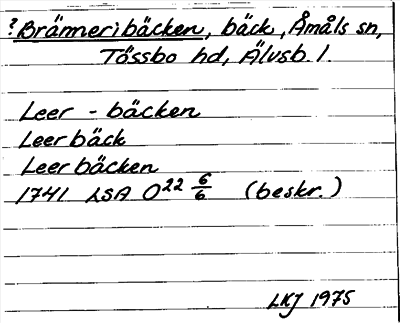 ? Bränneribäcken, bäck, Åmåls sn,
Tössbo hd, Älvsb. l.
Leer - bäcken
Leerbäck
Leerbäcken
1741 LSA O22 6/6 (beskr.)
LKJ 1975